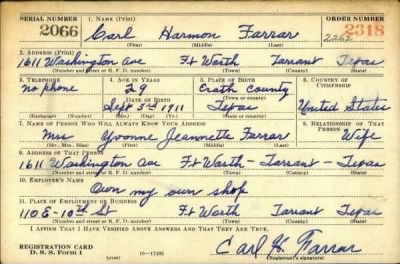 SERIAL NUMBER 1. NAME (Print) ORDER NUMBER
2066 Carl Harmon Farrar 2318
(First) (Middle) (Last) 2262
2. ADDRESS (Print)
1611 Washington Ave Ft Worth Tarrant Texas
(Number and street or R. F. D. number) (Town) (County) (State)
3. TELEPHONE 4. AGE IN YEARS 5. PLACE OF BIRTH 6. COUNTRY OF CITIZENSHIP
no phone 29 Erath County
DATE OF BIRTH (Town or county)
Sept 5th 1911 Texas United States
(Exchange) (Number) (Mo.) (Day) (Yr.) (State or country)
7. NAME OF PERSON WHO WILL ALWAYS KNOW YOUR ADDRESS 8. RELATIONSHIP OF THAT PERSON
Mrs Yvonne Jeannette Farrar Wife
(Mr., Mrs., Miss) (First) (Middle) (Last)
9. ADDRESS OF THAT PERSON
1611 Washington Ave Ft Worth - Tarrant - Texas
(Number and street or R. F. D. number) (Town) (County) (State)
10. EMPLOYER'S NAME
Own my own shop
11. PLACE OF EMPLOYMENT OR BUSINESS
110 E - 10th St Ft Worth Tarrant Texas
(Number and street or R. F. D. number) (Town) (County) (State)
I AFFIRM THAT I HAVE VERIFIED ABOVE ANSWERS AND THAT THEY ARE TRUE.
REGISTRATION CARD Carl H. Farrar
D. S. S. Form 1 (over) 16-17105 (Registrant's signature)